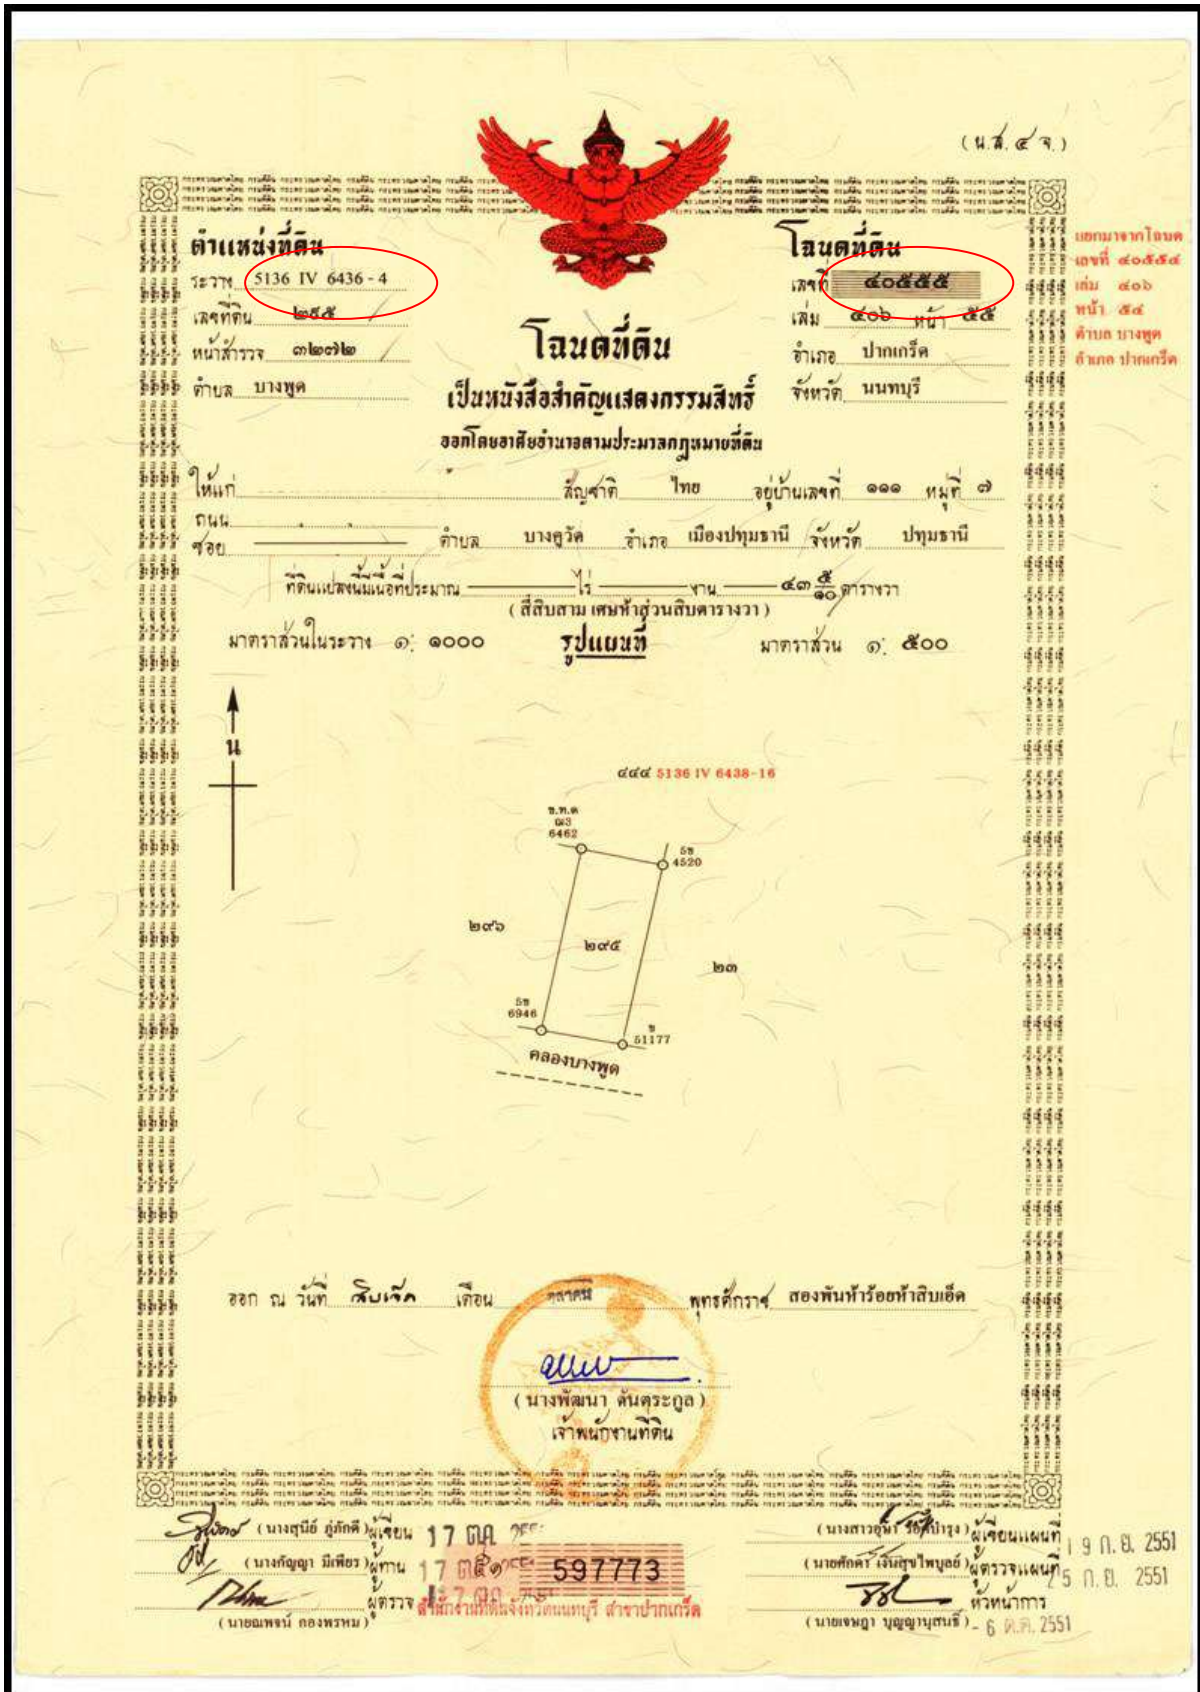 (น.ส. ๔ จ.)
ตำแหน่งที่ดิน
ระวาง 5136 IV 6436 - 4
เลขที่ดิน ๒๙๕
หน้าสำรวจ ๓๒๗๒
ตำบล บางพูด
โฉนดที่ดิน
เลขที่ ๔๐๕๕๕
เล่ม ๔๐๖ หน้า ๕๕
อำเภอ ปากเกร็ด
จังหวัด นนทบุรี
แยกมาจากโฉนด
เลขที่ ๔๐๕๕๔
เล่ม ๔๐๖
หน้า ๕๔
ตำบล บางพูด
อำเภอ ปากเกร็ด
โฉนดที่ดิน
เป็นหนังสือสำคัญแสดงกรรมสิทธิ์
ออกโดยอาศัยอำนาจตามประมวลกฎหมายที่ดิน
ให้แก่ สัญชาติ ไทย อยู่บ้านเลขที่ ๑๑๑ หมู่ที่ ๗
ถนน
ซอย ตำบล บางคูวัด อำเภอ เมืองปทุมธานี จังหวัด ปทุมธานี
ที่ดินแปลงนี้มีเนื้อที่ประมาณ ไร่ งาน ๔๓ ๕/๑๐ ตารางวา
(สี่สิบสาม เศษห้าส่วนสิบตารางวา)
มาตราส่วนในระวาง ๑: ๑๐๐๐ รูปแผนที่ มาตราส่วน ๑: ๕๐๐
น
๔๔๔ 5136 IV 6438-16
6462
5ข
4520
๒๙๖
๒๙๕
๒๓
5ข
6946
ข
51177
คลองบางพูด
ออก ณ วันที่ สิบเจ็ด เดือน ตุลาคม พุทธศักราช สองพันห้าร้อยห้าสิบเอ็ด
(นางพัฒนา ตันตระกูล)
เจ้าพนักงานที่ดิน
(นางสุนีย์ ภู่ภักดี) ผู้เขียน 17 ต.ค.
(นางกัญญา มีเพียร) ผู้ทาน 17
ผู้ตรวจ
(นายณพจน์ กองพรหม)
597773
สำนักงานที่ดินจังหวัดนนทบุรี สาขาปากเกร็ด
ผู้เขียนแผนที่ 19 ก.ย. 2551
(นายศักดา เงินสุขไพบูลย์) ผู้ตรวจแผนที่ 25 ก.ย. 2551
หัวหน้าการ
(นายเจษฎา บุญญานุสนธิ์) - 6 ต.ค. 2551